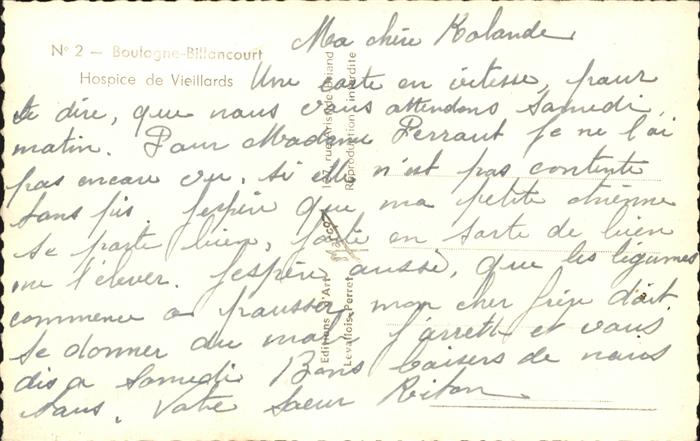 Ma chère Rolande
N° 2 — Boulogne-Billancourt
Hospice de Vieillards
Une carte en vitesse, pour
te dire, que nous vous attendons Samedi
matin. Pour Madame Perraut je ne l'ai
pas encore vu. Si elle n'est pas contente
tans pis. J'espère que ma petite
se porte bien, faite en sorte de bien
me l'élever. J'espère aussi, que les légumes
commence a pousser mon cher frère doit
se donner du mal. J'arrette et vous
dis a Samedi Bons baisers de nous
tous. Votre Sœur Riton
Editions d'Art
Levallois-Perret
107, rue Aristide-Briand
Reproduction interdite